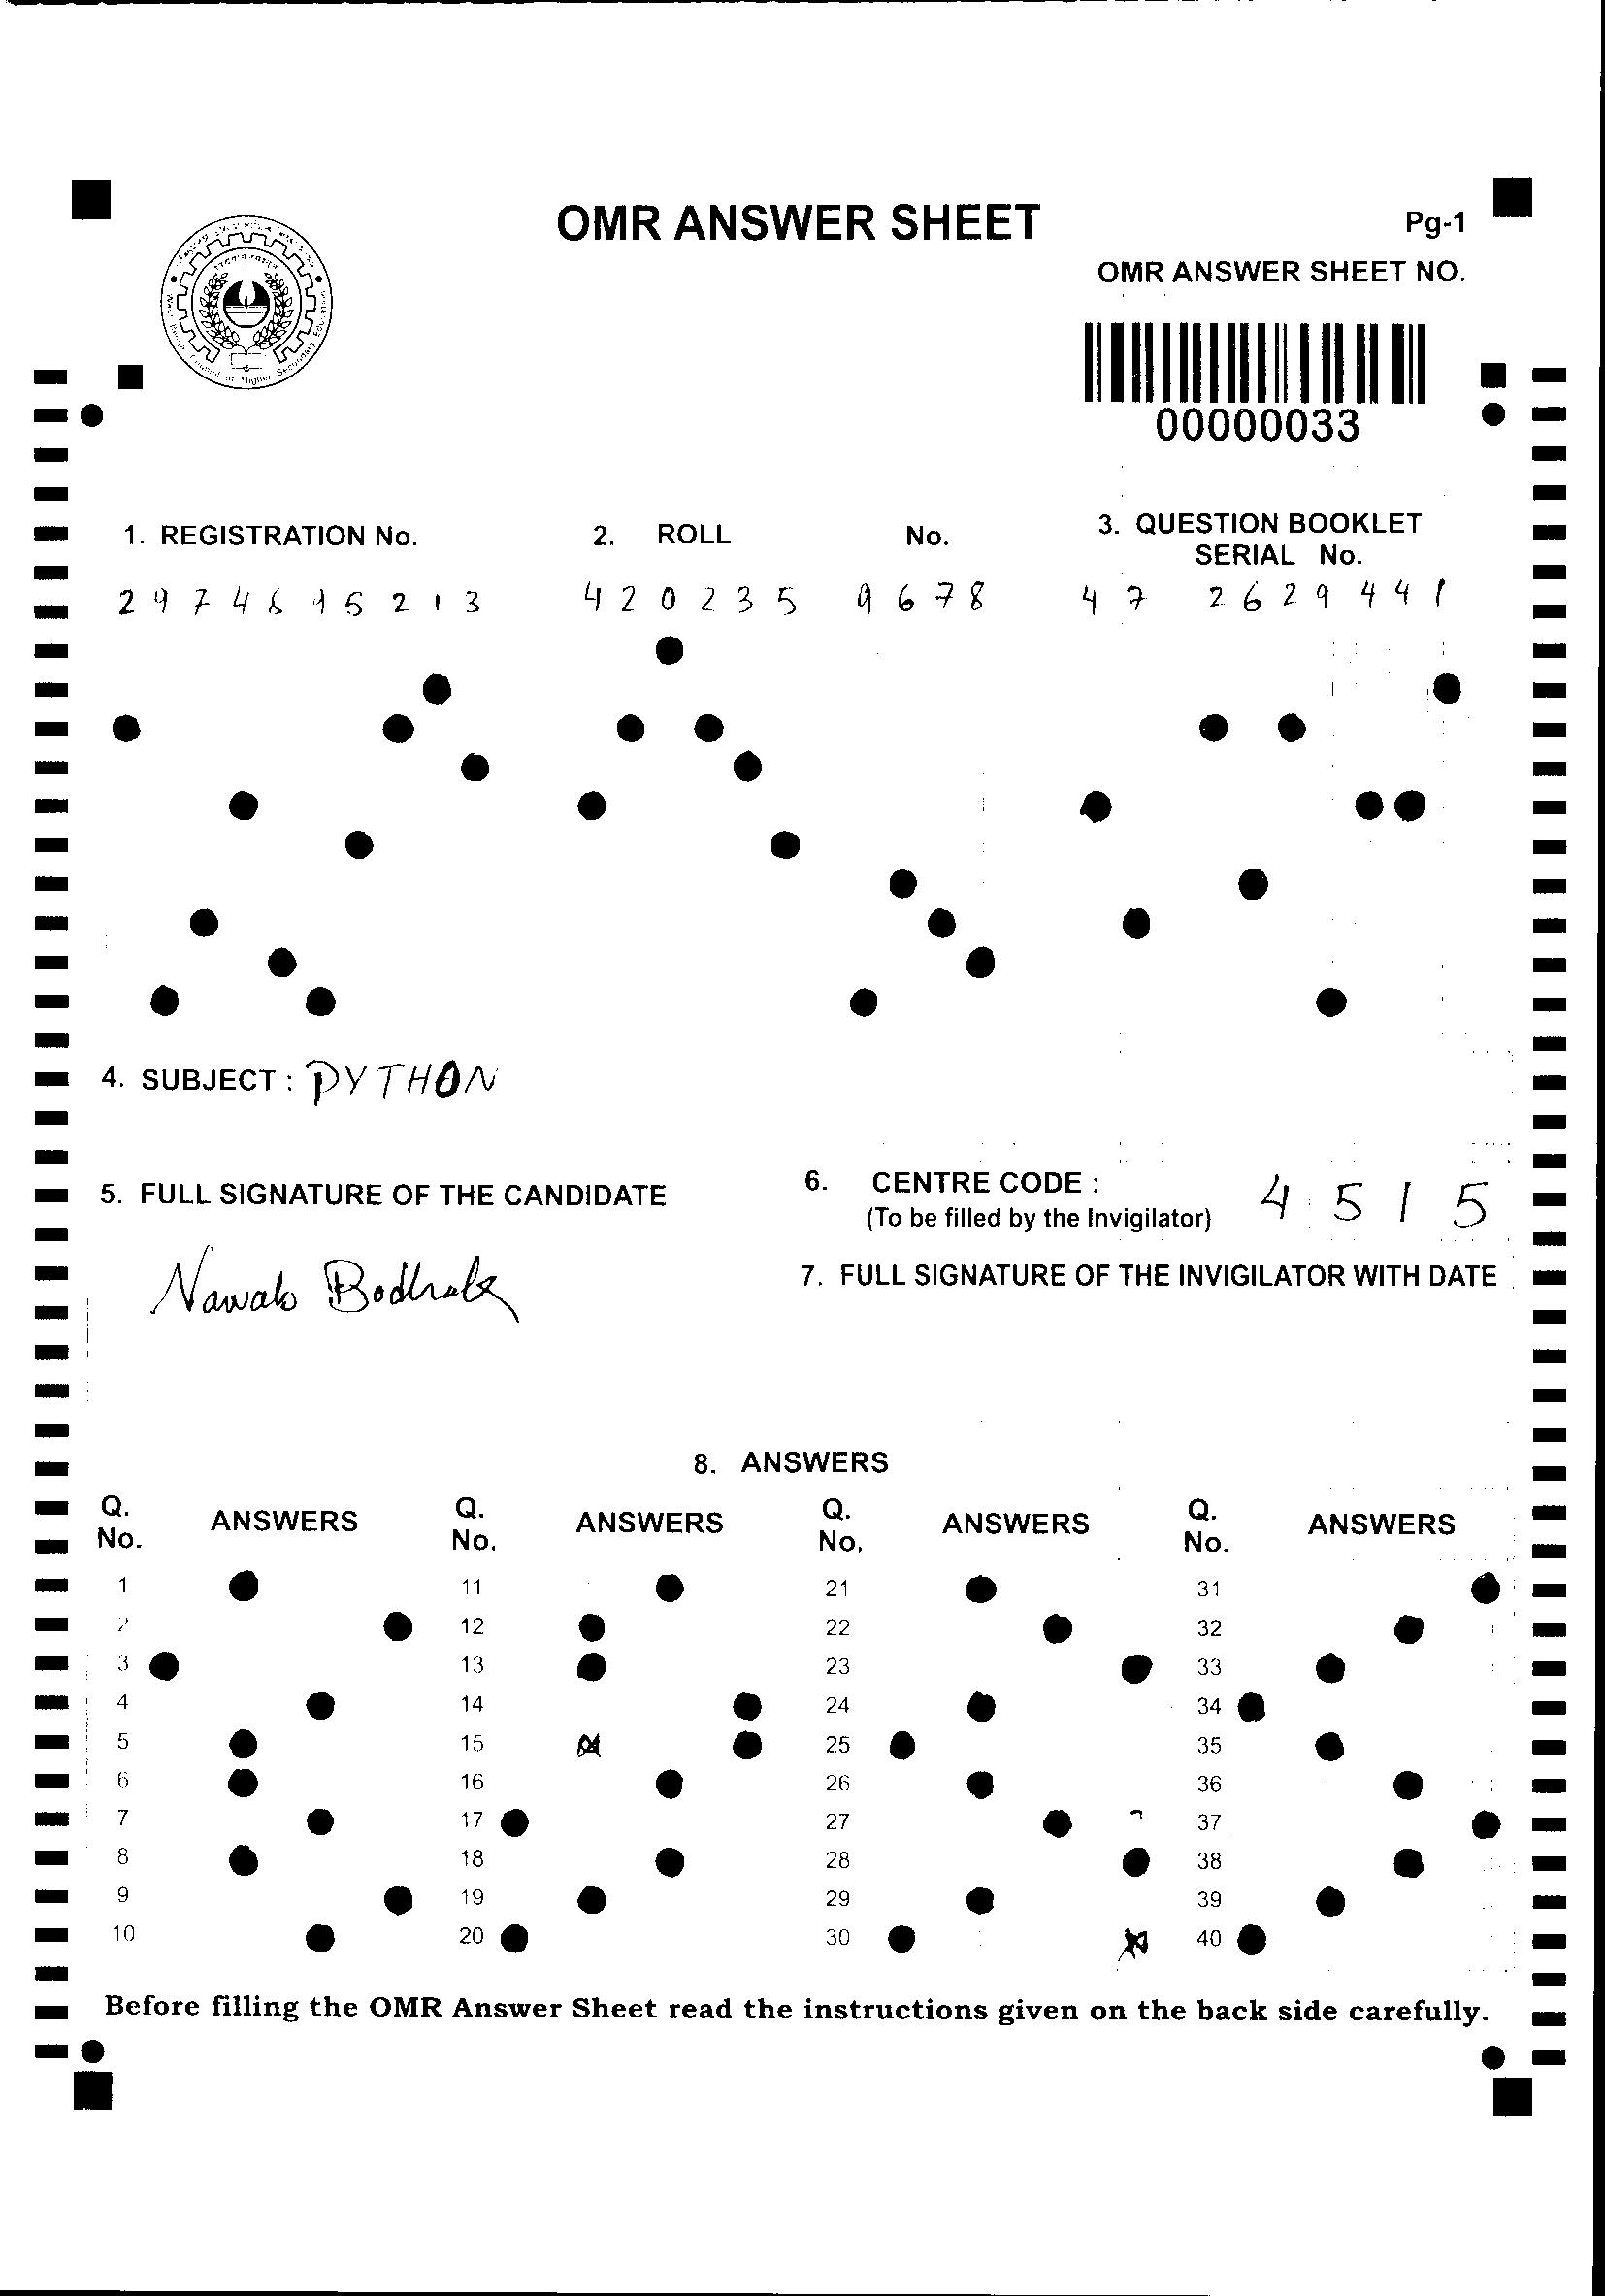 OMR ANSWER SHEET
Pg-1
OMR ANSWER SHEET NO.
00000033
1. REGISTRATION No. 2. ROLL No. 3. QUESTION BOOKLET SERIAL No.
2974895213 420235 9678 47 2629441
4. SUBJECT : PYTHON
5. FULL SIGNATURE OF THE CANDIDATE
6. CENTRE CODE : 4515
(To be filled by the Invigilator)
7. FULL SIGNATURE OF THE INVIGILATOR WITH DATE
8. ANSWERS
Q. No. ANSWERS Q. No. ANSWERS Q. No. ANSWERS Q. No. ANSWERS
1 11 21 31
2 12 22 32
3 13 23 33
4 14 24 34
5 15 25 35
6 16 26 36
7 17 27 37
8 18 28 38
9 19 29 39
10 20 30 40
Before filling the OMR Answer Sheet read the instructions given on the back side carefully.